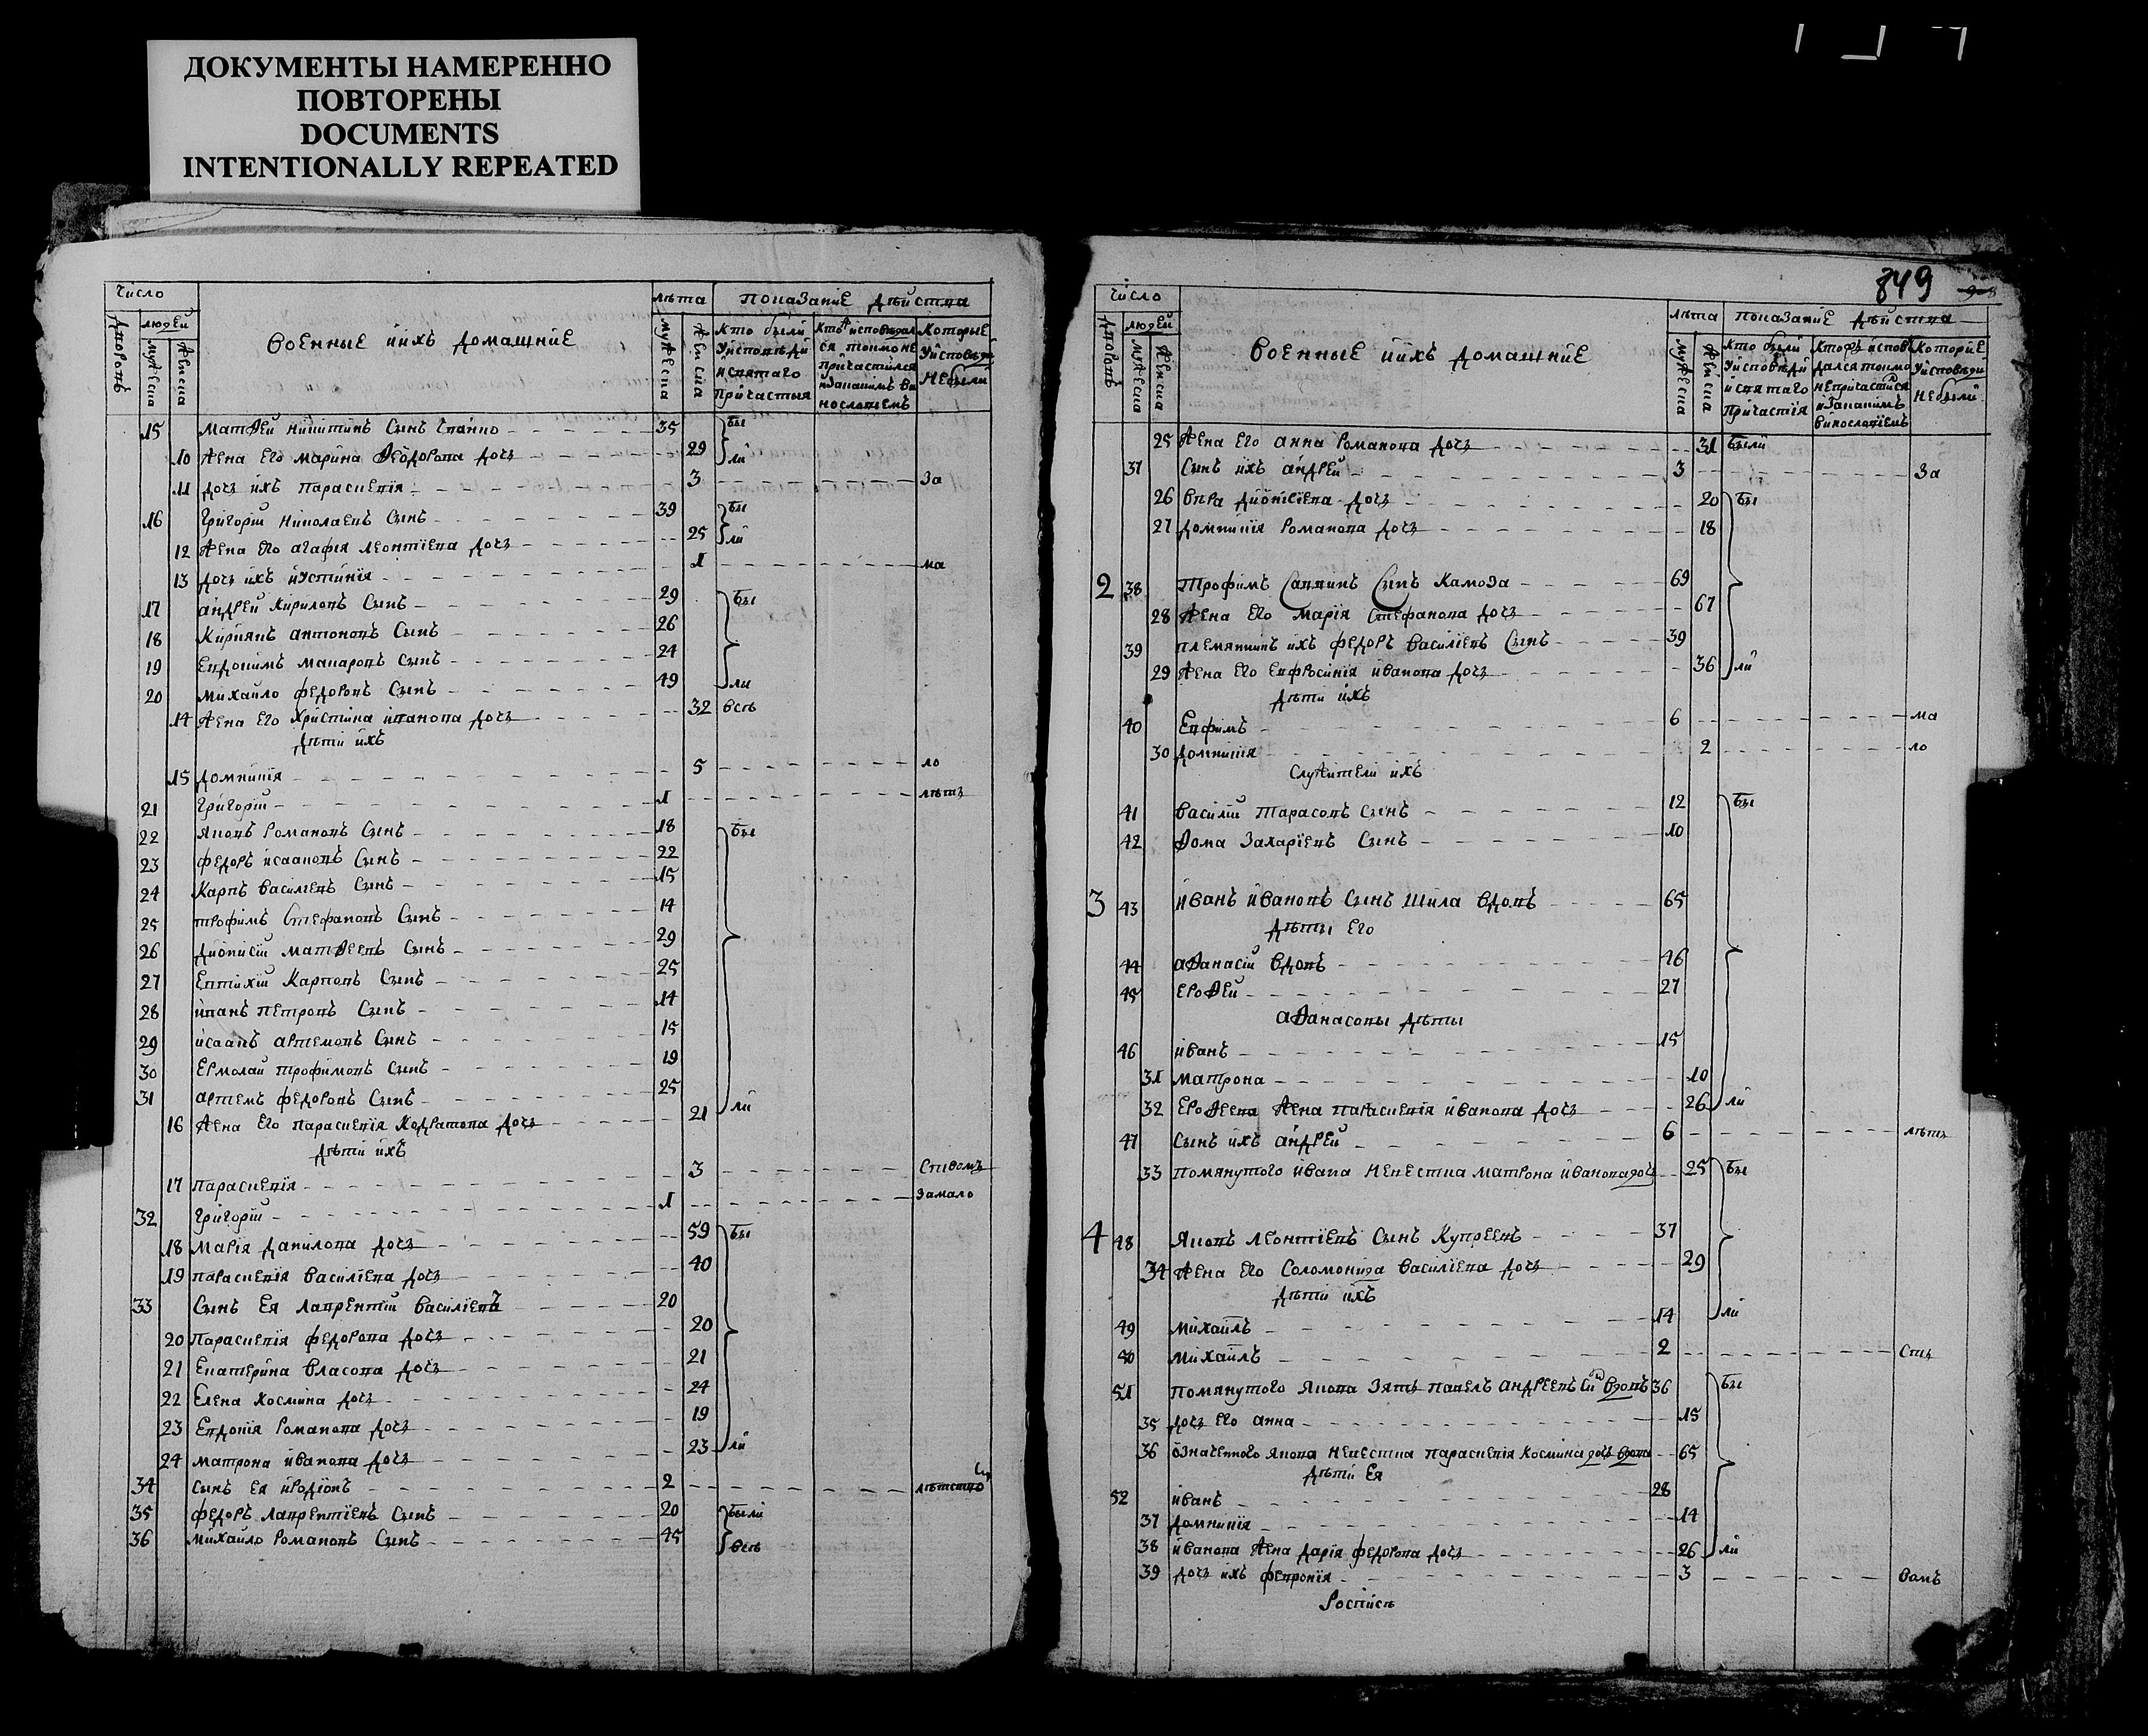 ДОКУМЕНТЫ НАМЕРЕННО
ПОВТОРЕНЫ
DOCUMENTS
INTENTIONALLY REPEATED
Число
людей
дворовъ
мужеска
женска
военные ийхъ домашние
лѣта
мужеска
женска
показание действа
кто были у исповѣди и святаго причастия
кто исповѣдался токмо не причастился и за каким винословиемъ
которые у исповѣди не были
15 Матѳей никитинъ сынъ 35 бы
10 жена его марина Ѳеодорова дочь 29 ли
11 дочь ихъ параскевия 3 за
16 Григорий николаевъ сынъ 39 бы
12 жена его агафия леонтиева дочь 25 ли
13 дочь ихъ иустиния 1 ма
17 андрей кириловъ сынъ 29 бы
18 Киприянъ антоновъ сынъ 26
19 Евдокимъ макаровъ сынъ 24
20 михайло федоровъ сынъ 49 ли
14 жена его христина иванова дочь 32 всѣ
дѣти ихъ
15 домникия 5 ло
21 григорий 1 лѣтъ
22 яковъ романовъ сынъ 18 бы
23 федоръ исааковъ сынъ 22
24 Карпъ василиевъ сынъ 15
25 трофимъ стефановъ сынъ 14
26 дионисий матѳеевъ сынъ 29
27 Евтихий Карповъ сынъ 25
28 иванъ петровъ сынъ 14
29 исаакъ артемовъ сынъ 15
30 ермолай трофимовъ сынъ 19
31 артемъ федоровъ сынъ 25
16 жена его параскевия Кодратова дочь 21 ли
дѣти ихъ
17 параскевия 3
32 григорий 1 замало
18 мария данилова дочь 59 бы
19 параскевия василиева дочь 40
33 сынъ ея лаврентий василиевъ 20
20 параскевия федорова дочь 20
21 екатерина власова дочь 21
22 елена космина дочь 24
23 евдокия романова дочь 19
24 матрона иванова дочь 23 ли
34 сынъ ея иродионъ 2
35 федоръ лаврентиевъ сынъ 20 были
36 михайло романовъ сынъ 45 всѣ
849
число
людей
дворовъ
мужеска
женска
военные ийхъ домашние
лѣта
мужеска
женска
показание действа
кто были у исповѣди и святаго причастия
кто исповѣдался токмо не причастился и за каким винословиемъ
которые у исповѣди не были
25 жена его анна романова дочь 31 были
37 сынъ ихъ андрей 3 за
26 вѣра дионисиева дочь 20 бы
27 домникия романова дочь 18
2 38 трофимъ саввинъ сынъ Камоза 69
28 жена его мария стефанова дочь 67
39 племянникъ ихъ федоръ василиевъ сынъ 39
29 жена его евфросиния иванова дочь 36 ли
дѣти ихъ
40 Евфимъ 6 ма
30 домникия 2 ло
служители ихъ
41 василий тарасовъ сынъ 12 бы
42 Ѳома захариевъ сынъ 10
3 43 иванъ ивановъ сынъ шила вдовъ 65
дѣти его
44 аѳанасий вдовъ 46
45 ероѳей 27
аѳанасовы дѣти
46 иванъ 15
31 матрона 10
32 ероѳеева жена параскевия иванова дочь 26 ли
47 сынъ ихъ андрей 6 лѣтъ
33 помянутого ивана невестка матрона иванова дочь 25 бы
4 48 яковъ леонтиевъ сынъ Купреевъ 37
34 жена его соломонида василиева дочь 29
дѣти ихъ
49 михаилъ 14 ли
50 михаилъ 2
51 помянутого якова зять павелъ андреевъ сынъ вдовъ 36 бы
35 дочь его анна 15
36 означенного якова невестка параскевия космина дочь вдова 65
дѣти ея
52 иванъ 28
37 домникия 14
38 иванова жена дария федорова дочь 26 ли
39 дочь ихъ феврония 3
роспись